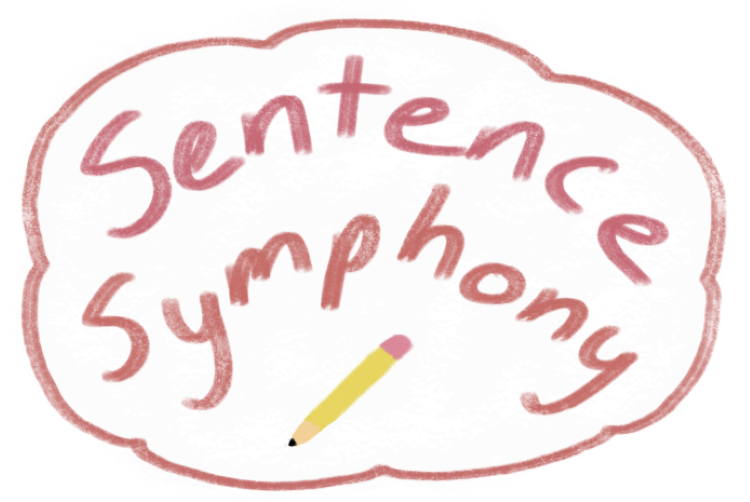 Sentence
Symphony